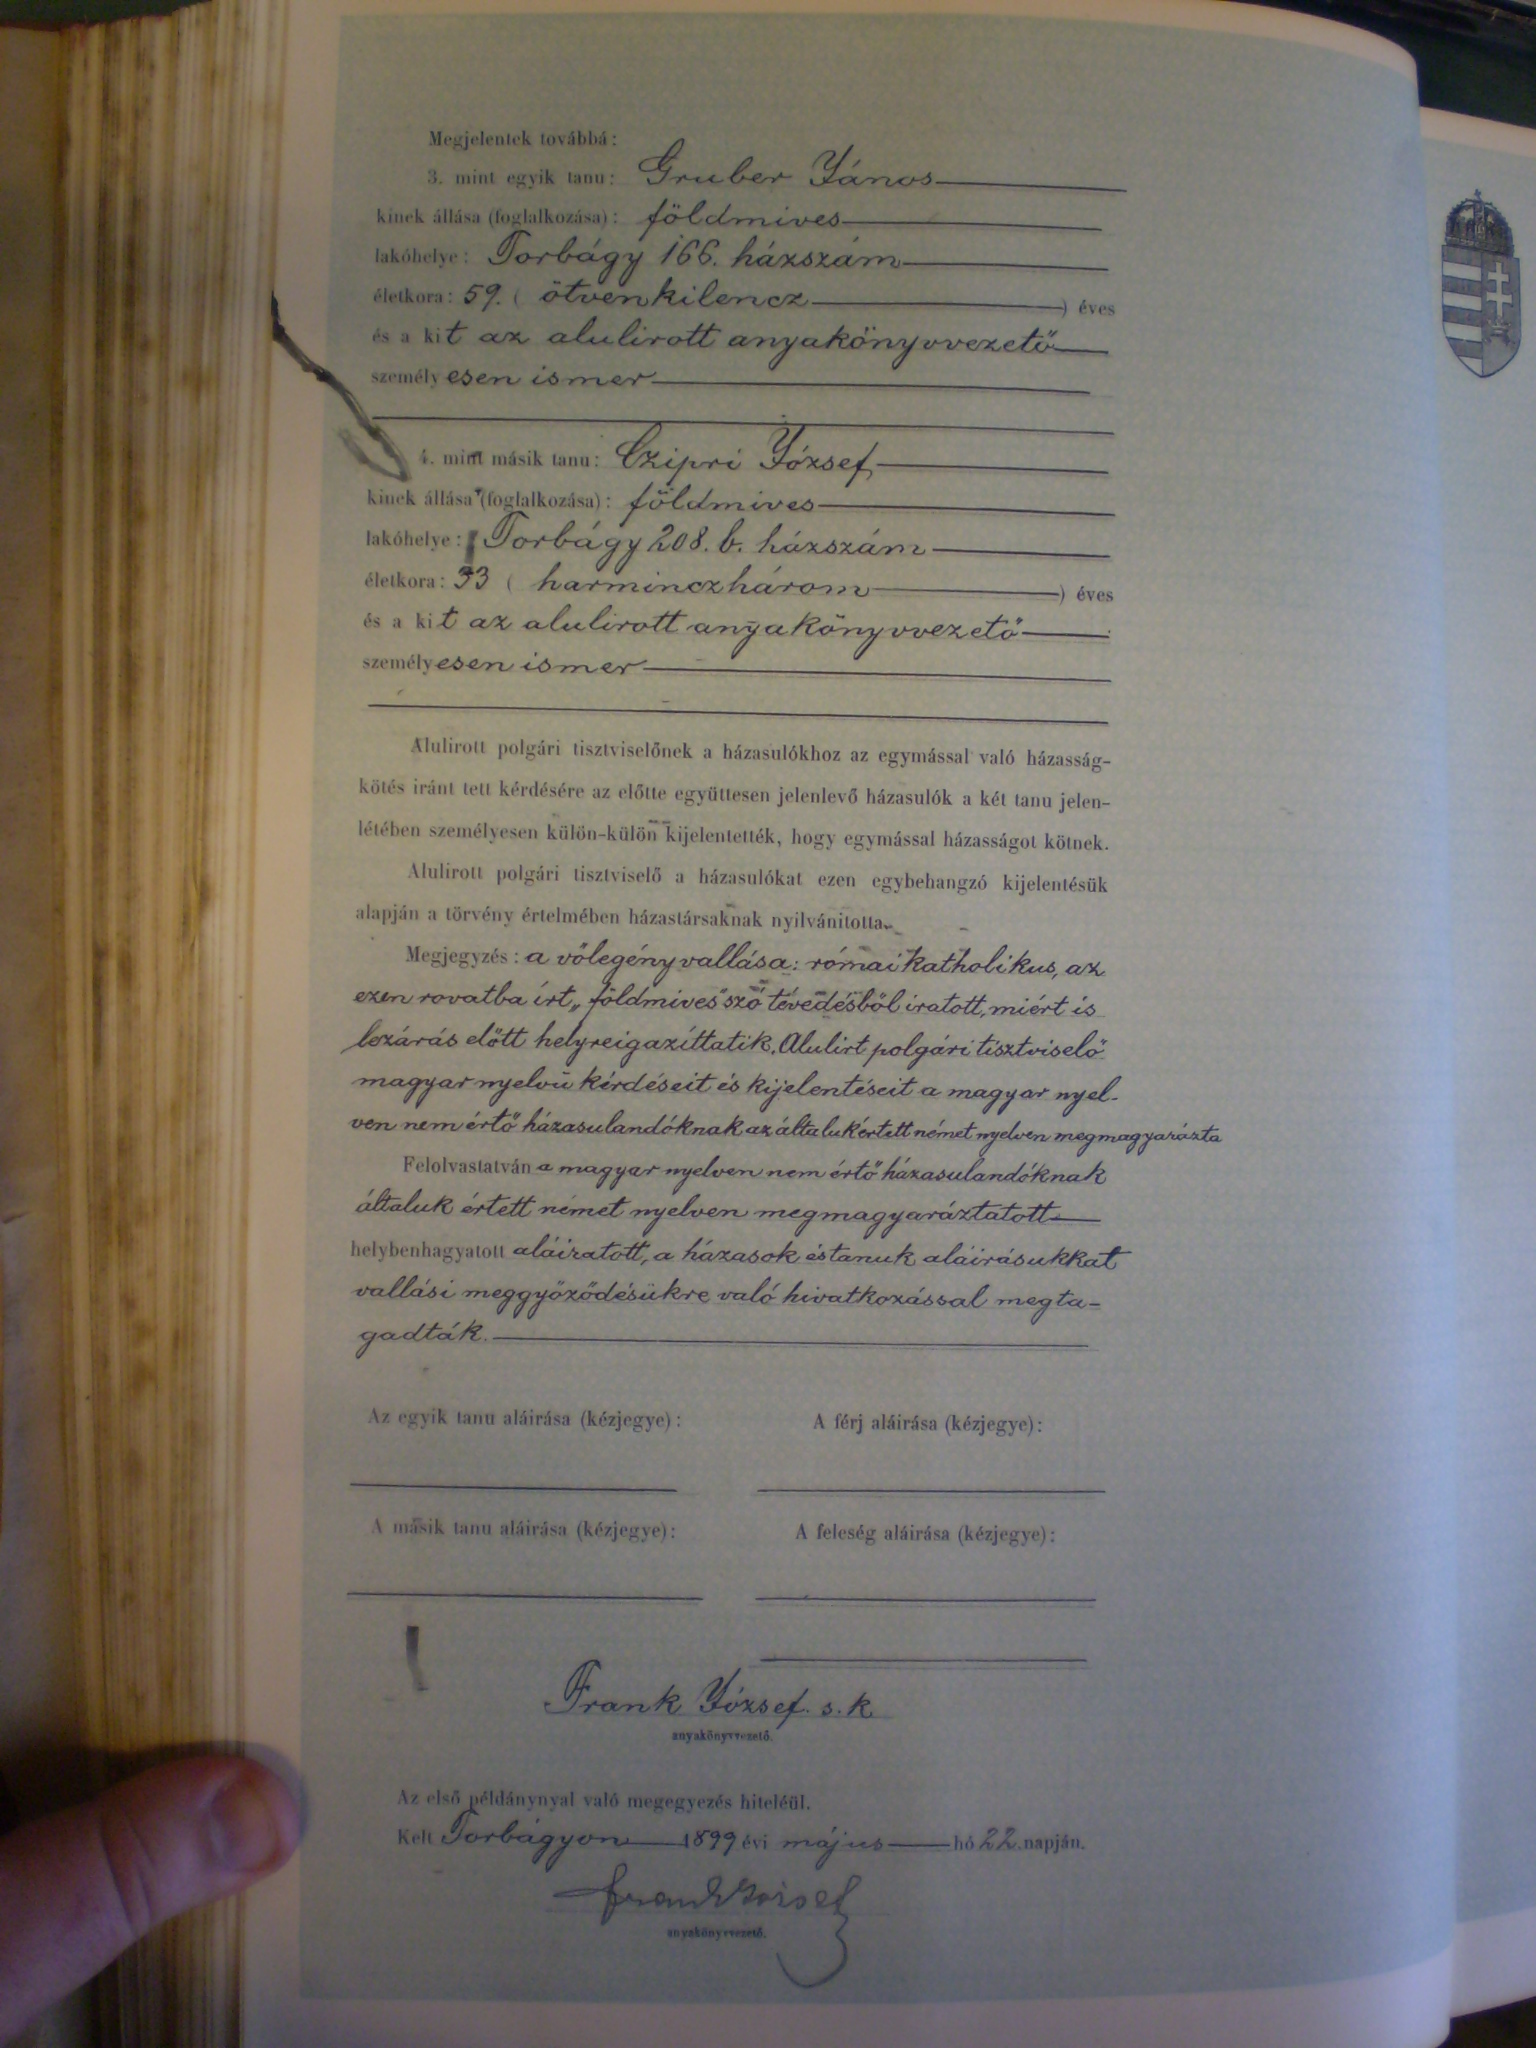 Megjelentek továbbá:
3. mint egyik tanu: Gruber János
kinek állása (foglalkozása): földmives
lakóhelye: Torbágy 166. házszám
életkora: 59. (ötvenkilencz) éves
és a kit az alulirott anyakönyvvezető
személyesen ismer
4. mint másik tanu: Czipri József
kinek állása (foglalkozása): földmives
lakóhelye: Torbágy 208. b. házszám
életkora: 33 (harminczhárom) éves
és a kit az alulirott anyakönyvvezető
személyesen ismer
Alulirott polgári tisztviselőnek a házasulókhoz az egymással való házasság-
kötés iránt tett kérdésére az előtte együttesen jelenlevő házasulók a két tanu jelen-
létében személyesen külön-külön kijelentették, hogy egymással házasságot kötnek.
Alulirott polgári tisztviselő a házasulókat ezen egybehangzó kijelentésük
alapján a törvény értelmében házastársaknak nyilvánitotta.
Megjegyzés: a vőlegény vallása: római katholikus, az
ezen rovatba írt „földmives" szó tévedésből iratott, miért is
lezárás előtt helyreigazíttatik. Alulirt polgári tisztviselő
magyar nyelvü kérdéseit és kijelentéseit a magyar nyel-
ven nem értő házasulandóknak az általuk értett német nyelven megmagyarázta
Felolvastatván a magyar nyelven nem értő házasulandóknak
általuk értett német nyelven megmagyaráztatott
helybenhagyatott aláiratott, a házasok és tanuk aláirásukkat
vallási meggyőződésükre való hivatkozással megta-
gadták.
Az egyik tanu aláirása (kézjegye): A férj aláirása (kézjegye):
A másik tanu aláirása (kézjegye): A feleség aláirása (kézjegye):
Frank József. s. k.
anyakönyvvezető.
Az első példánynyal való megegyezés hiteléül.
Kelt Torbágyon 1899 évi május hó 22. napján.
Frank József
anyakönyvvezető.